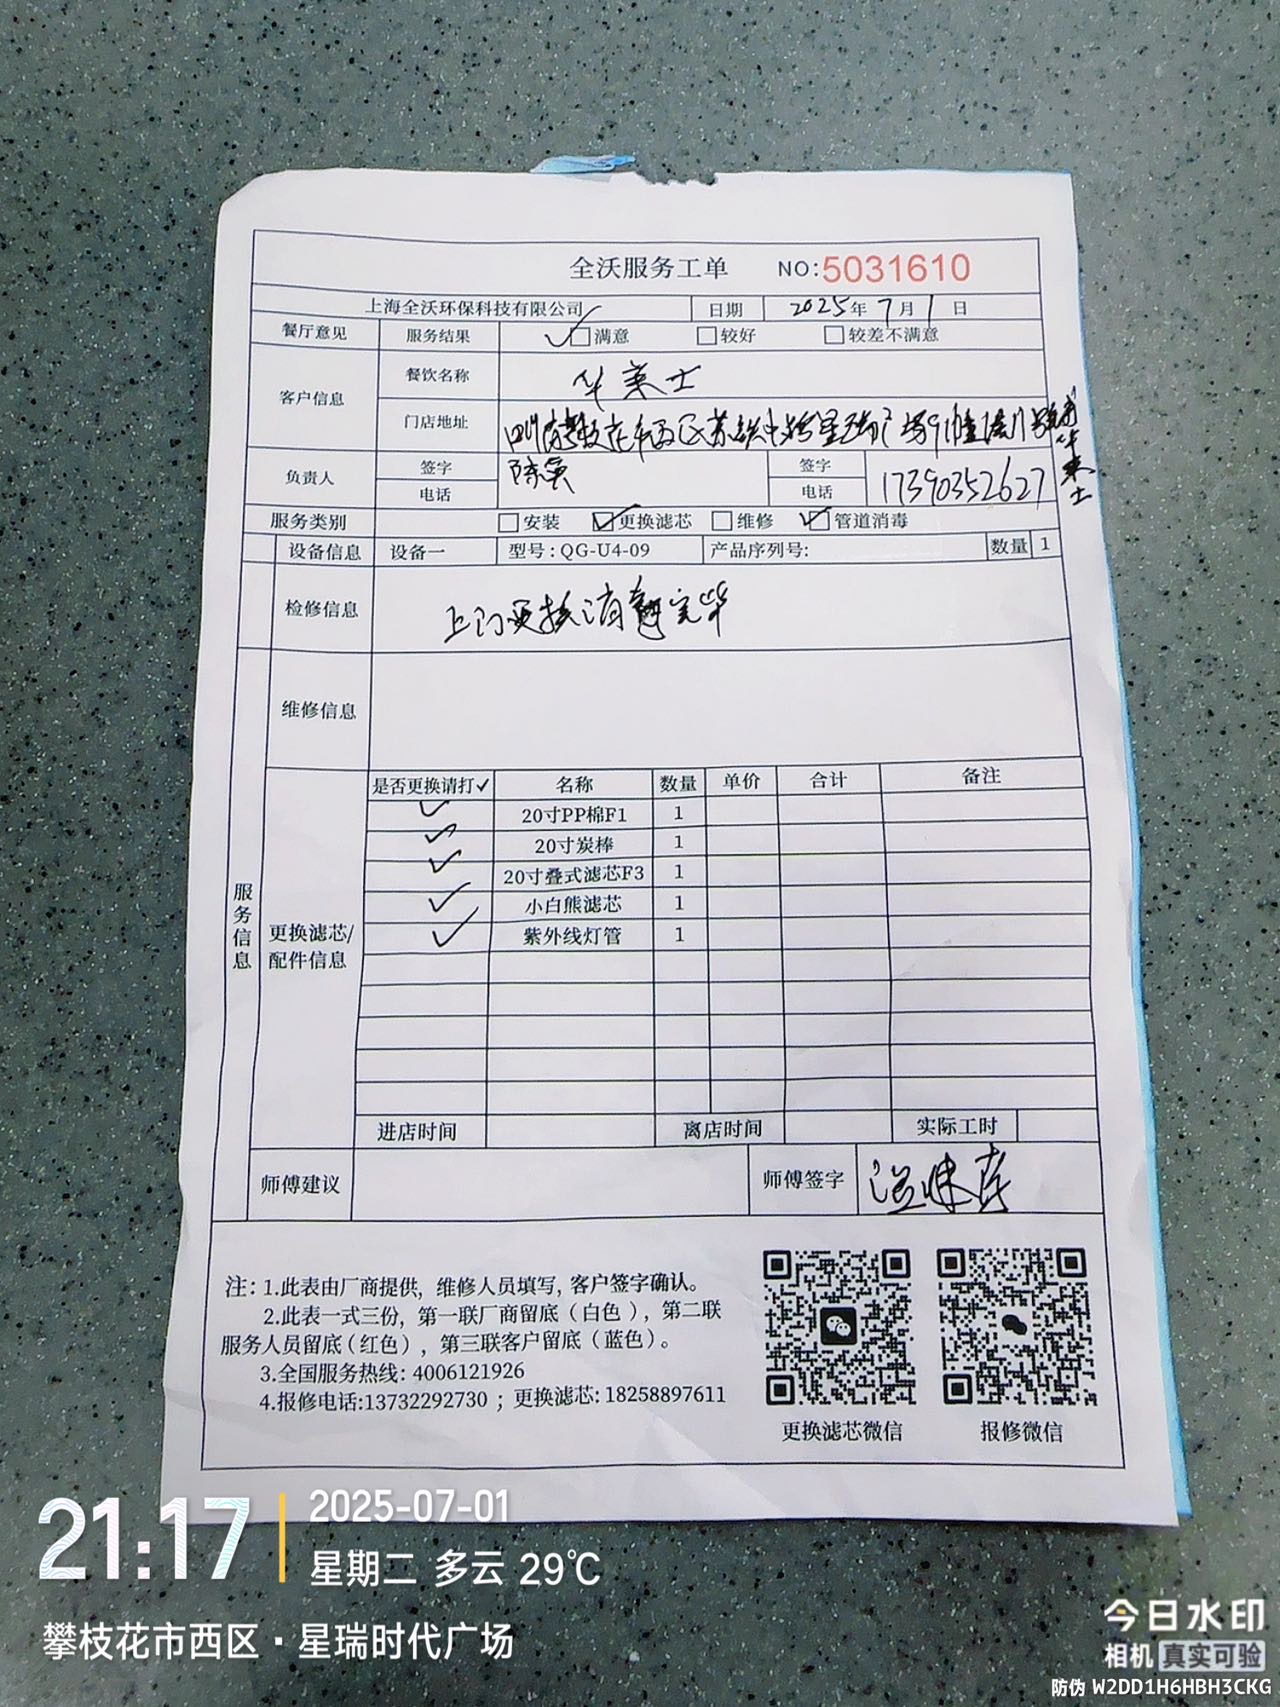 全沃服务工单 NO:5031610
上海全沃环保科技有限公司 日期 2025年7月1日
餐厅意见 服务结果 ✓□满意 □较好 □较差不满意
客户信息 餐饮名称 华莱士
门店地址 星瑞广场 华莱士
负责人 签字 陈 签字
电话 电话 17390352627
服务类别 □安装 ☑更换滤芯 □维修 ☑管道消毒
设备信息 设备一 型号:QG-U4-09 产品序列号: 数量 1
检修信息 上门更换消毒完毕
维修信息
服务信息
更换滤芯/
配件信息
是否更换请打✓ 名称 数量 单价 合计 备注
✓ 20寸PP棉F1 1
✓ 20寸炭棒 1
✓ 20寸叠式滤芯F3 1
✓ 小白熊滤芯 1
✓ 紫外线灯管 1
进店时间 离店时间 实际工时
师傅建议 师傅签字
注: 1.此表由厂商提供, 维修人员填写, 客户签字确认。
2.此表一式三份, 第一联厂商留底(白色), 第二联
服务人员留底(红色), 第三联客户留底(蓝色)。
3.全国服务热线: 4006121926
4.报修电话:13732292730 ; 更换滤芯: 18258897611
更换滤芯微信 报修微信
21:17 2025-07-01
星期二 多云 29℃
攀枝花市西区·星瑞时代广场
今日水印
相机 真实可验
防伪 W2DD1H6HBH3CKG